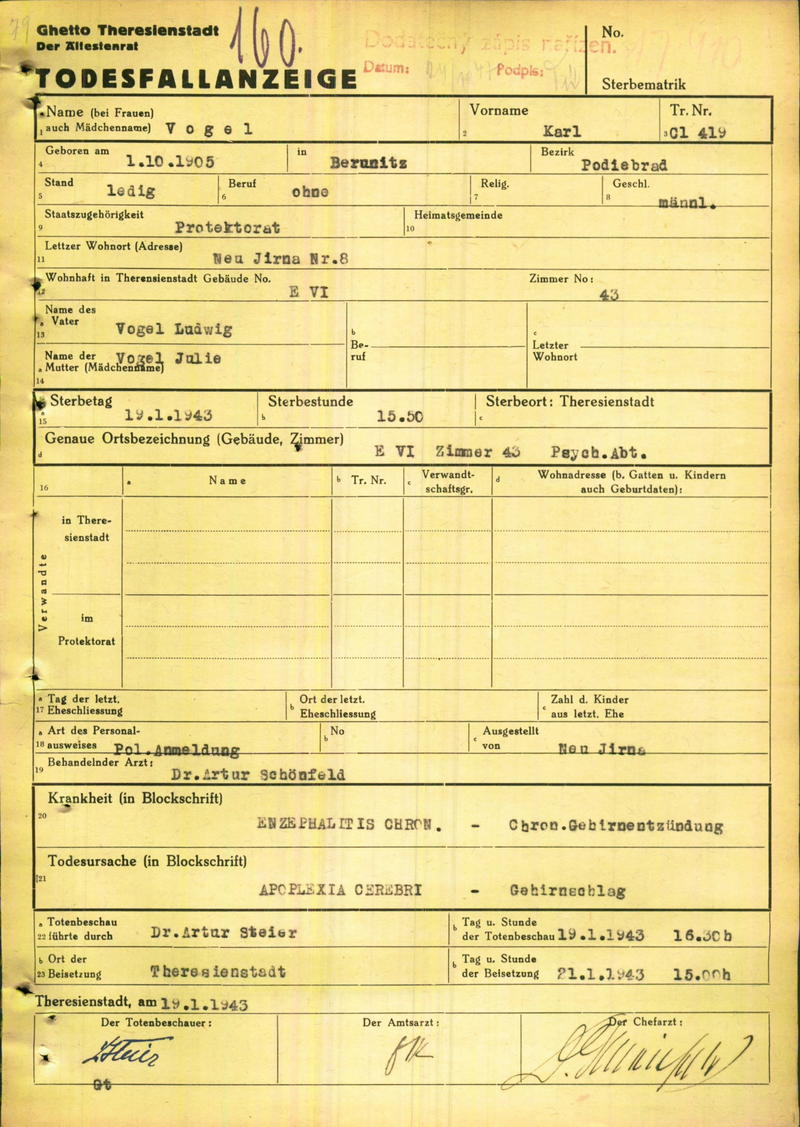 79
Ghetto Theresienstadt
Der Ältestenrat
160.
Dodatečný zápis nařízen.
Datum: Podpis:
TODESFALLANZEIGE
No.
Sterbematrik
a Name (bei Frauen)
1 auch Mädchenname) Vogel
Vorname
2 Karl
Tr. Nr.
3 Cl 419
Geboren am
4 1.10.1905
in
Bernnitz
Bezirk
Podiebrad
Stand
5 ledig
Beruf
6 ohne
Relig.
7
Geschl.
8 männl.
Staatszugehörigkeit
9 Protektorat
Heimatsgemeinde
10
Lettzer Wohnort (Adresse)
11 Neu Jirna Nr.8
Wohnhaft in Therensienstadt Gebäude No.
12 E VI
Zimmer No:
43
Name des
a Vater
13 Vogel Ludwig
Name der
a Mutter (Mädchenname) Vogel Julie
14
b
Be-
ruf
c
Letzter
Wohnort
Sterbetag
a
15 19.1.1943
Sterbestunde
b 15.50
Sterbeort: Theresienstadt
c
Genaue Ortsbezeichnung (Gebäude, Zimmer)
d E VI Zimmer 43 Psych.Abt.
16
a Name
b Tr. Nr.
c Verwandt-
schaftsgr.
d Wohnadresse (b. Gatten u. Kindern
auch Geburtdaten):
Verwandte
in There-
sienstadt
im
Protektorat
a Tag der letzt.
17 Eheschliessung
b Ort der letzt.
Eheschliessung
c Zahl d. Kinder
aus letzt. Ehe
a Art des Personal-
18 ausweises Pol.Anmeldung
b No
c Ausgestellt
von Neu Jirna
Behandelnder Arzt:
19 Dr.Artur Schönfeld
Krankheit (in Blockschrift)
20
ENZEPHALITIS CHRON. - Chron.Gehirnentzündung
Todesursache (in Blockschrift)
21
APOPLEXIA CEREBRI - Gehirnschlag
a Totenbeschau
22 führte durch Dr.Artur Steier
b Tag u. Stunde
der Totenbeschau 19.1.1943 16.30h
b Ort der
23 Beisetzung Theresienstadt
b Tag u. Stunde
der Beisetzung 21.1.1943 15.00h
Theresienstadt, am 19.1.1943
Der Totenbeschauer:
Der Amtsarzt:
Der Chefarzt:
Gt